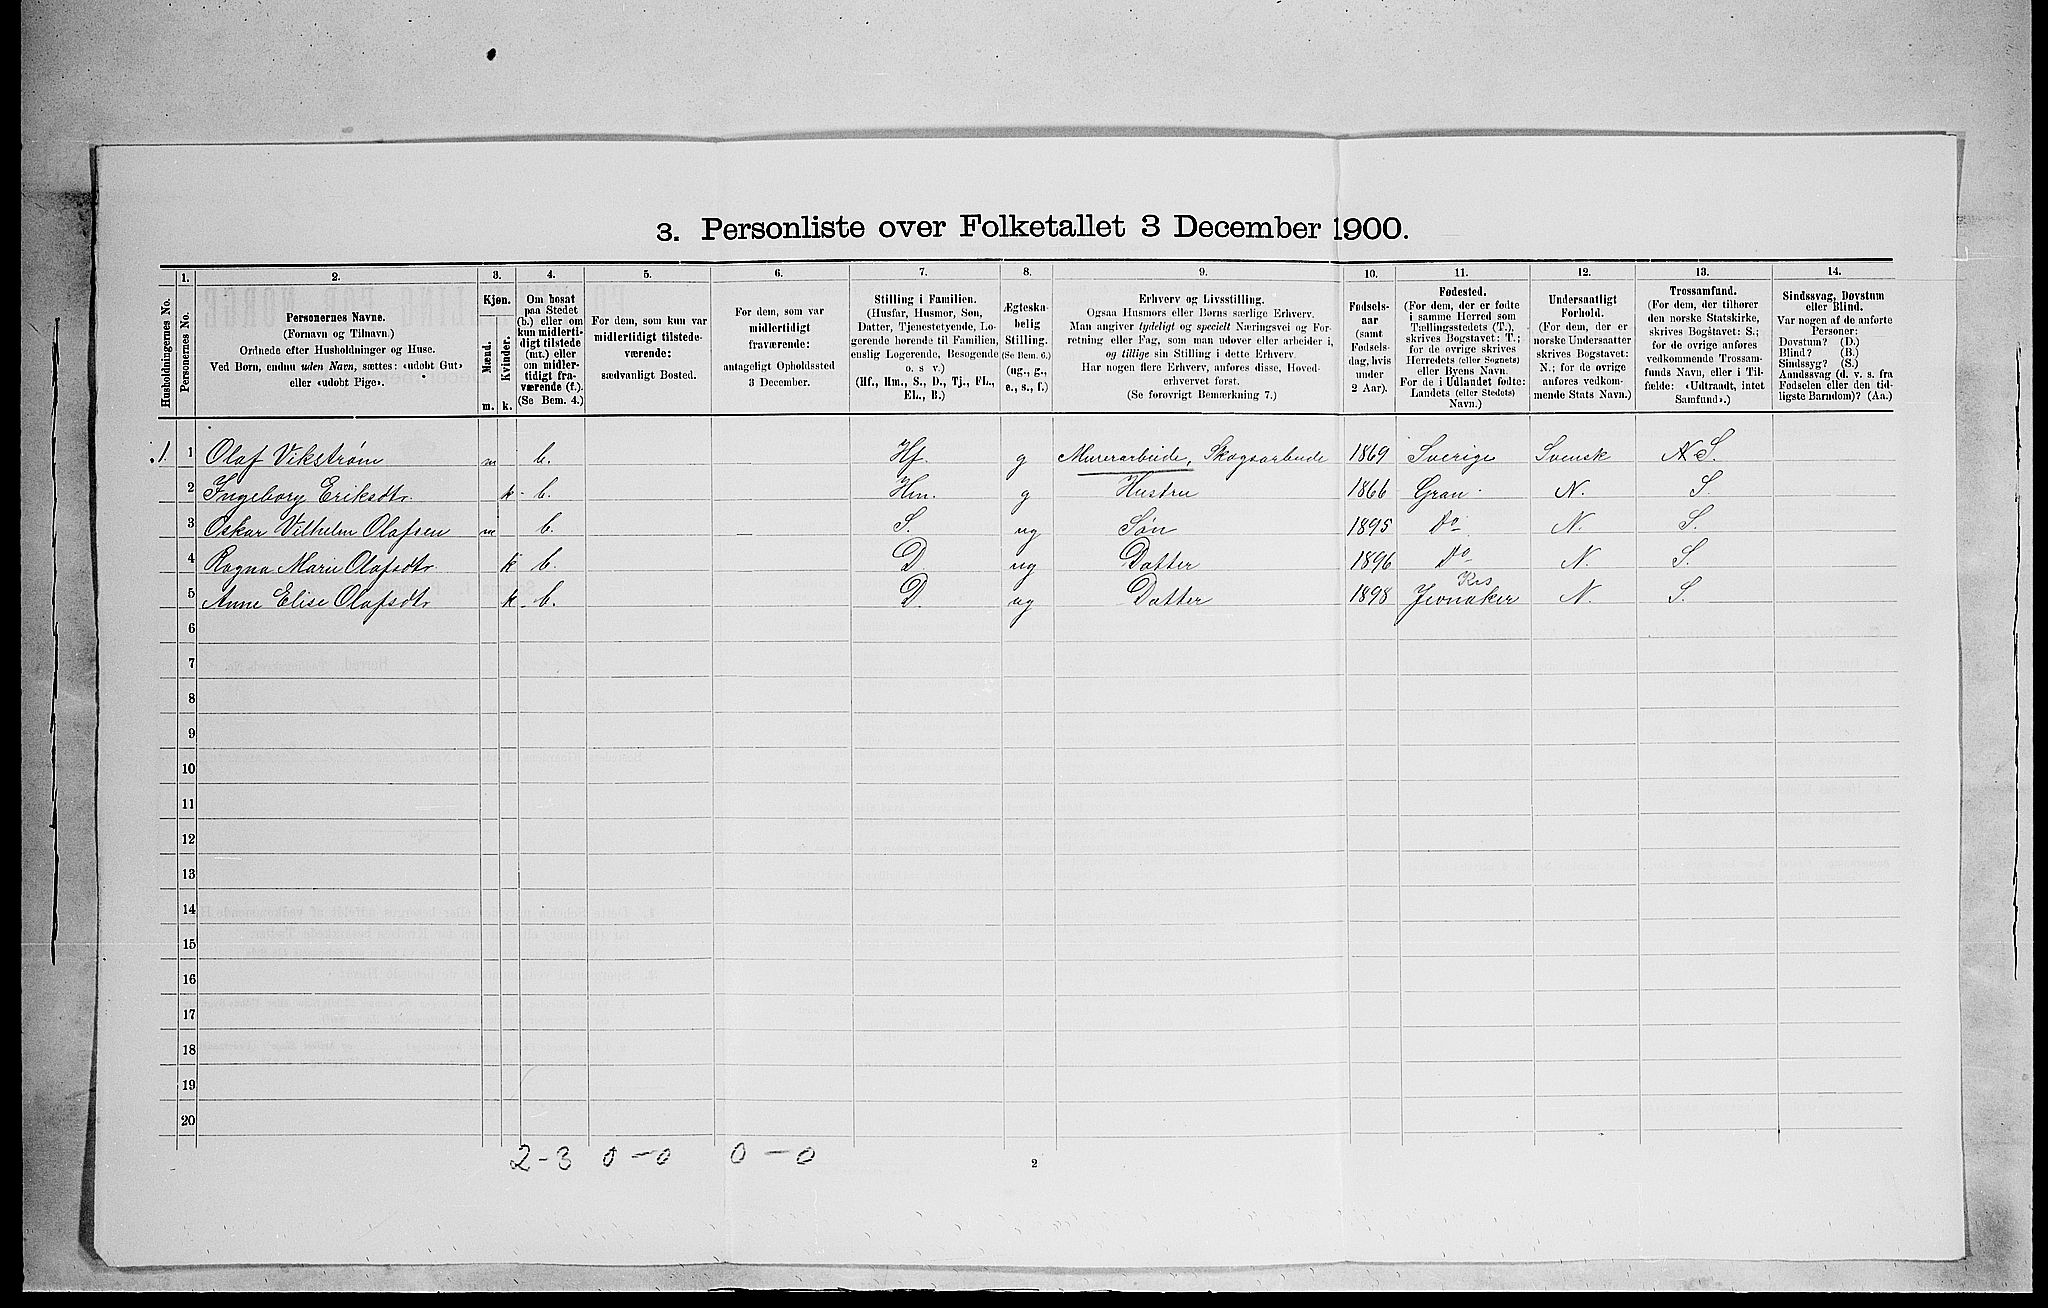 3. Personliste over Folketallet 3 December 1900.
1. 2. 3. 4. 5. 6. 7. 8. 9. 10. 11. 12. 13. 14.
Husholdningernes No.
Personernes No.
Personernes Navne.
(Fornavn og Tilnavn.)
Ordnede efter Husholdninger og Huse.
Ved Børn, endnu uden Navn, sættes: «udøbt Gut»
eller «udøbt Pige».
Kjøn.
Mænd.
Kvinder.
m. k.
Om bosat
paa Stedet
(b.) eller om
kun midlerti-
digt tilstede
(mt.) eller
om midler-
tidigt fra-
værende (f.).
(Se Bem. 4.)
For dem, som kun var
midlertidigt tilstede-
værende:
sædvanligt Bosted.
For dem, som var
midlertidigt
fraværende:
antageligt Opholdssted
3 December.
Stilling i Familien.
(Husfar, Husmor, Søn,
Datter, Tjenestetyende, Lo-
gerende hørende til Familien,
enslig Logerende, Besøgende
o. s v.)
(Hf., Hm., S., D., Tj., FL.,
EL., B.)
Ægteska-
belig
Stilling.
(Se Bem. 6.)
(ug., g.,
e., s., f.)
Erhverv og Livsstilling.
Ogsaa Husmors eller Børns særlige Erhverv.
Man angiver tydeligt og specielt Næringsvei og For-
retning eller Fag, som man udøver eller arbeider i,
og tillige sin Stilling i dette Erhverv.
Har nogen flere Erhverv, anføres disse, Hoved-
erhvervet først.
(Se forøvrigt Bemærkning 7.)
Fødsels-
aar
(samt
Fødsels-
dag, hvis
under
2 Aar).
Fødested.
(For dem, der er fødte
i samme Herred som
Tællingsstedets (T.),
skrives Bogstavet: T.;
for de øvrige skrives
Herredets (eller Sognets)
eller Byens Navn.
For de i Udlandet fødte:
Landets (eller Stedets)
Navn.)
Undersaatligt
Forhold.
(For dem, der er
norske Undersaatter
skrives Bogstavet:
N.; for de øvrige
anføres vedkom-
mende Stats Navn.)
Trossamfund.
(For dem, der tilhører
den norske Statskirke,
skrives Bogstavet: S.;
for de øvrige anføres
vedkommende Trossam-
funds Navn, eller i Til-
fælde: «Udtraadt, intet
Samfund».)
Sindssvag, Døvstum
eller Blind.
Var nogen af de anførte
Personer:
Døvstum? (D.)
Blind? (B.)
Sindssyg? (S.)
Aandssvag (d. v. s. fra
Fødselen eller den tid-
ligste Barndom)? (Aa.)
1. 1 Olaf Vikstrøm m b. Hf. g Murerarbeide, Skogsarbeide 1869 Sverige Svensk N S.
2 Ingeborg Eriksdtr. k. b. Hm. g Hustru 1866 Gran. N. S.
3 Oskar Vilhelm Olafsen m b. — S. ug Søn 1895 Do N. S.
4 Ragna Marie Olafsdtr. k b. D. ug Datter 1896 Do N. S.
5 Anne Elise Olafsdtr k. b. D. ug Datter 1898 Jevnaker N. S.
6
7
8
9
10
11
12
13
14
15
16
17
18
19
20
2 - 3 0 - 0 0 - 0
2